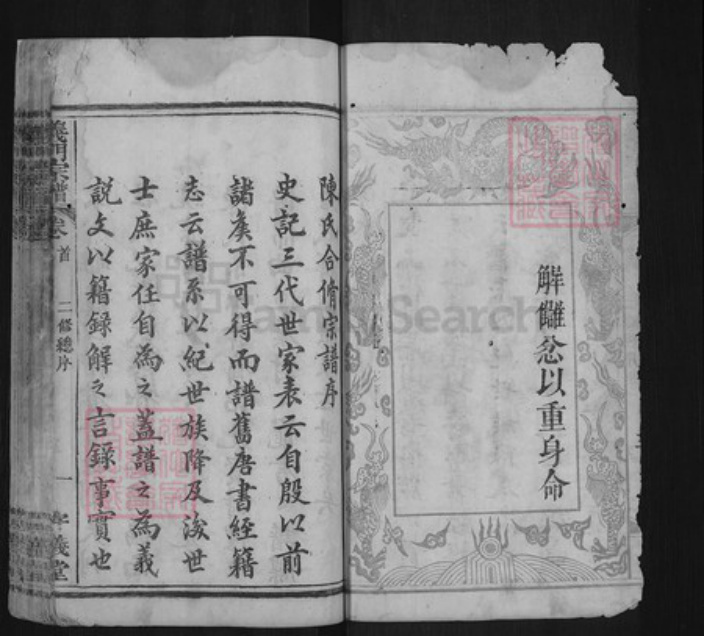 解讎忿以重身命
陳氏合脩宗譜序
史記三代世家表云自殷以前
諸矦不可得而譜舊唐書經籍
志云譜系以紀世族降及後世
士庶家任自為之蓋譜之為義
說文以籍録解之言錄事實也
義門宗譜 卷首 二修總序 一 孝義堂
FamilySearch